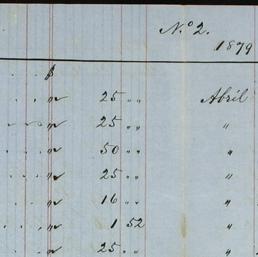 N.º 2.
1879
$
" 25 " " Abril
" 25 " " "
" 50 " " "
" 25 " " "
" 16 " " "
" 1 52 "
" 25 " " "